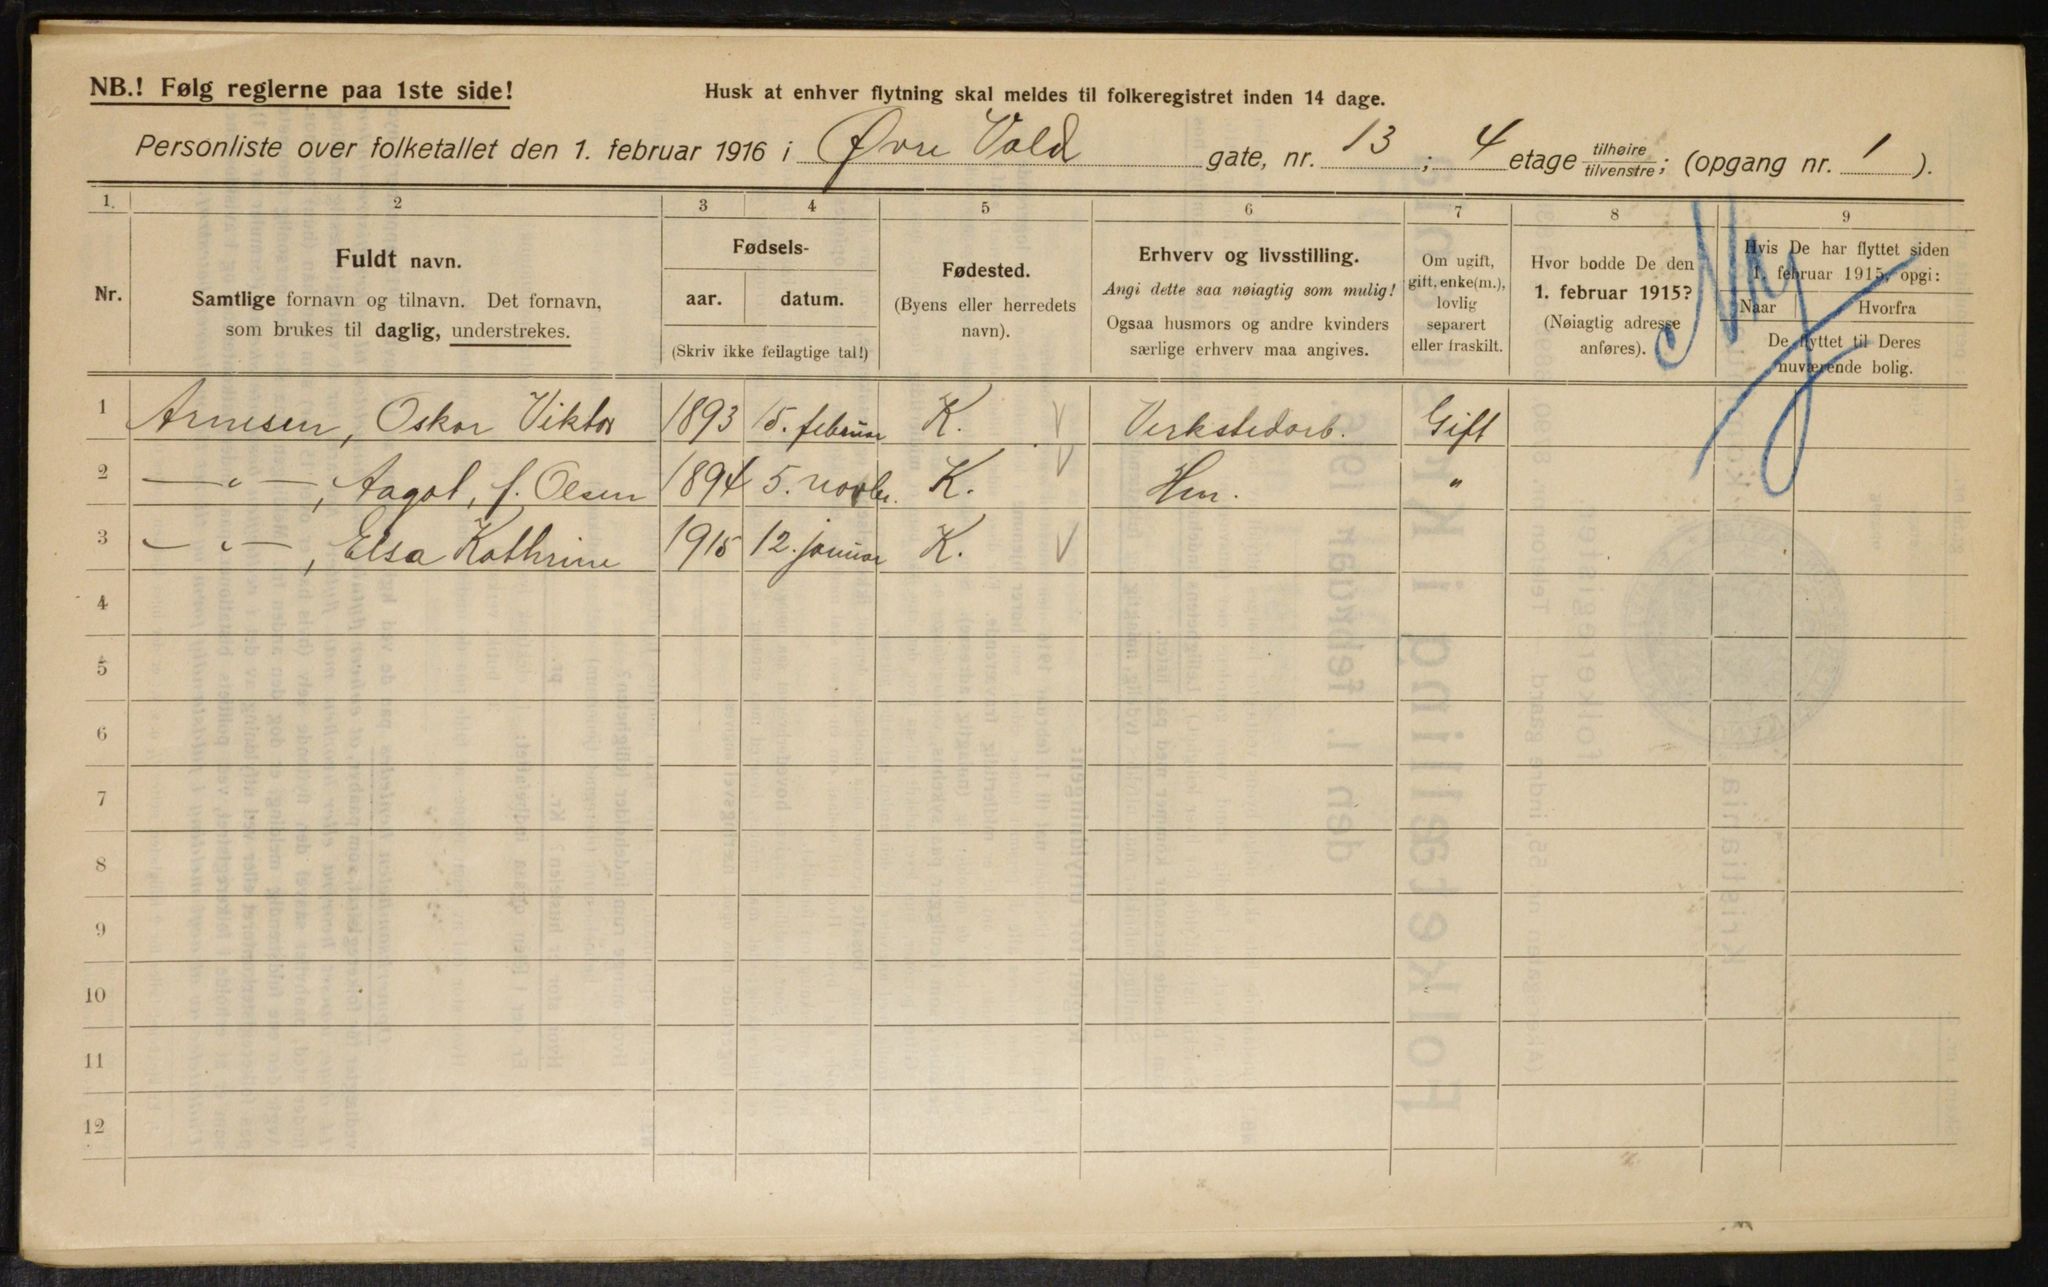 NB.! Følg reglerne paa 1ste side!
Husk at enhver flytning skal meldes til folkeregistret inden 14 dage.
Personliste over folketallet den 1. februar 1916 i Øvre Vold gate, nr. 13 ; 4 etage tilhøire/tilvenstre; (opgang nr. 1 ).
1. 2 3 4 5 6 7 8 9
Nr.
Fuldt navn.
Samtlige fornavn og tilnavn. Det fornavn,
som brukes til daglig, understrekes.
Fødsels-
aar. datum.
(Skriv ikke feilagtige tal!)
Fødested.
(Byens eller herredets
navn).
Erhverv og livsstilling.
Angi dette saa nøiagtig som mulig!
Ogsaa husmors og andre kvinders
særlige erhverv maa angives.
Om ugift,
gift, enke(m.),
lovlig
separert
eller fraskilt.
Hvor bodde De den
1. februar 1915?
(Nøiagtig adresse
anføres).
Hvis De har flyttet siden
1. februar 1915, opgi:
Naar Hvorfra
De flyttet til Deres
nuværende bolig.
Ny
1 Arnesen, Oskar Viktor 1893 15. februar K. Verkstedarb. Gift
2 — " —, Aagot, f. Olsen 1894 5. novbr. K. Hm. "
3 — " —, Elsa Kathrine 1915 12. januar K.
4
5
6
7
8
9
10
11
12